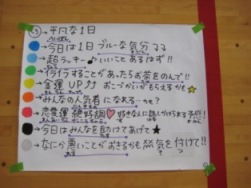 平凡な1日
今日は1日ブルーな気分
超ラッキー♪いいことあるはず!!
イライラすることがあったらお茶をのんで!!
金運UP おこづかいがもらえるかも☆
みんなの人気者になれる…かも?
恋愛運 絶好調♡好きな人に話しかけられる
今日はみんなを助けてあげて★
なにか悪いことがおきるかも 気を付けて!!